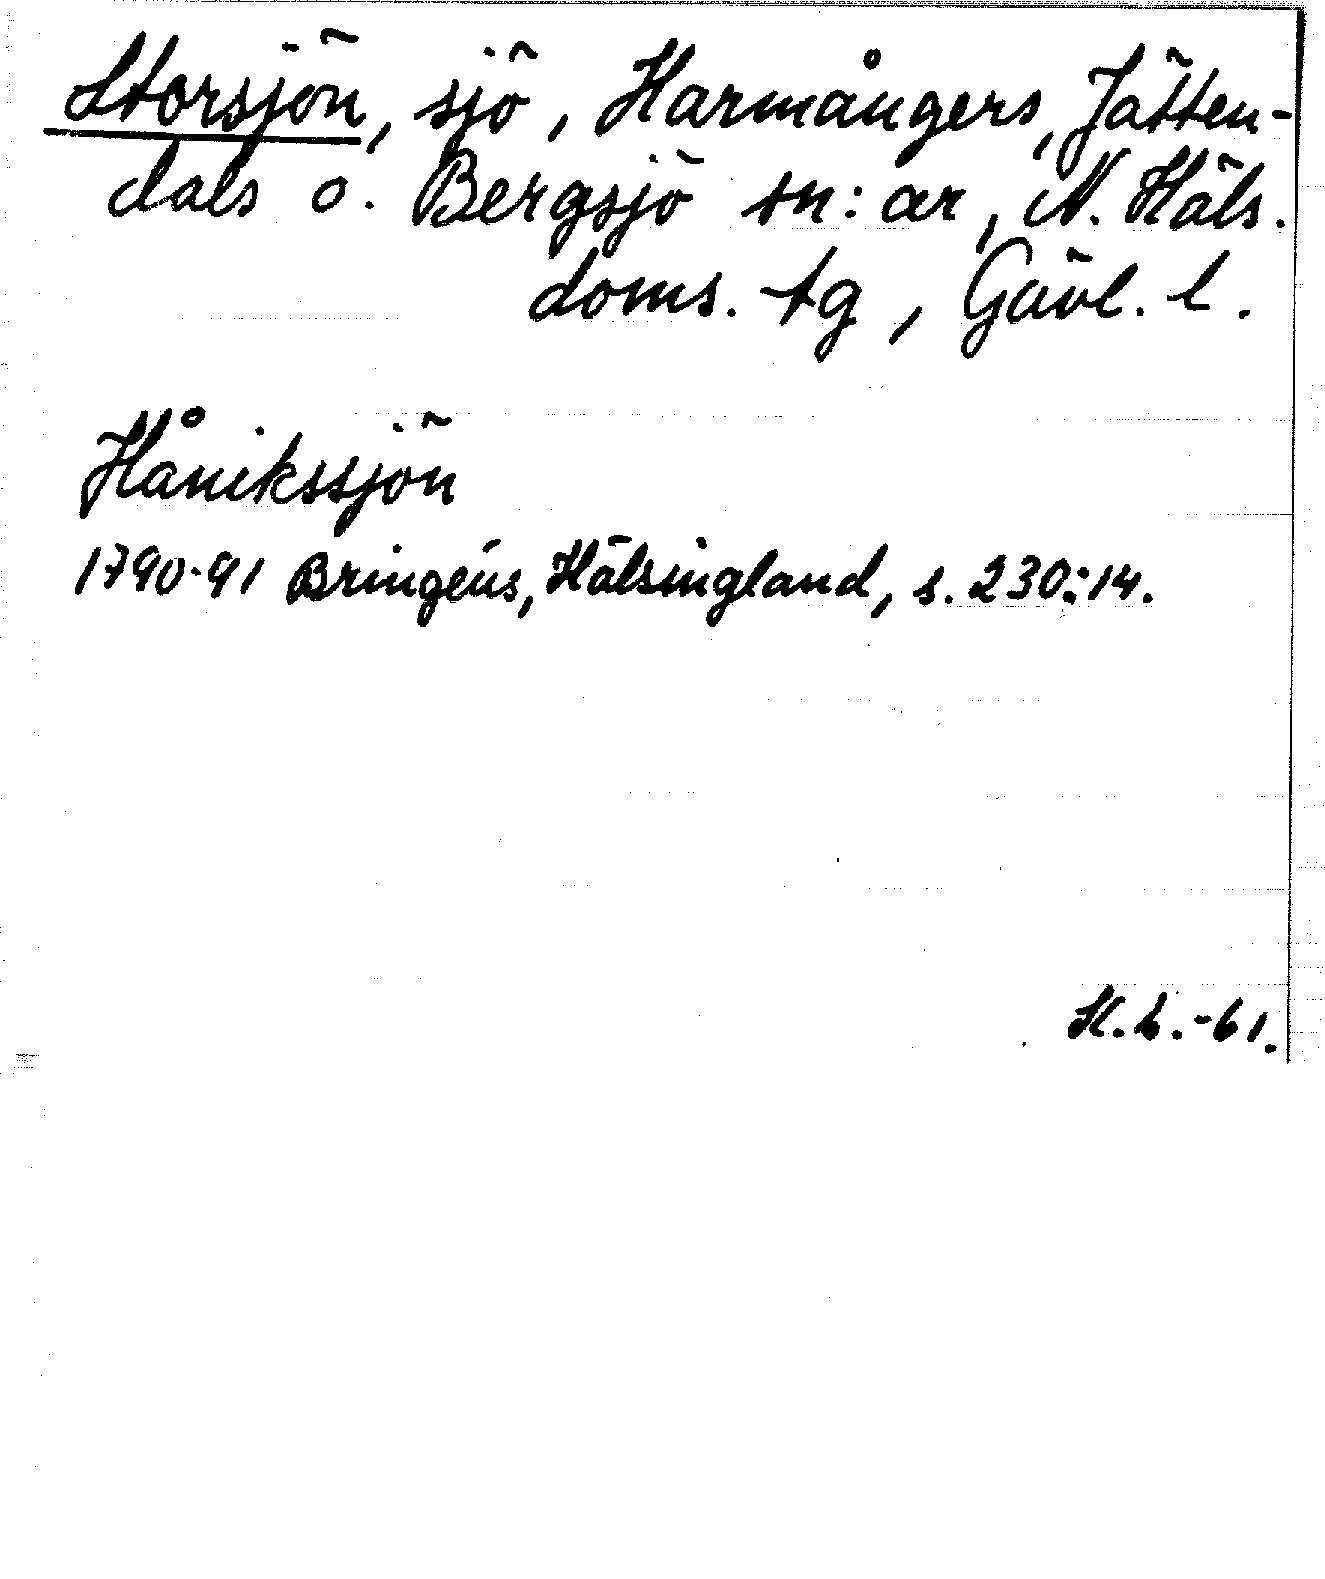 Storsjön, sjö, Harmångers, Jätten-
dals o. Bergsjö sn:ar, N. Häls.
doms. tg, Gävl. l.
Hånikssjön
1790-91 Bringéus, Hälsingland, s. 230:14.
K.L.-61.